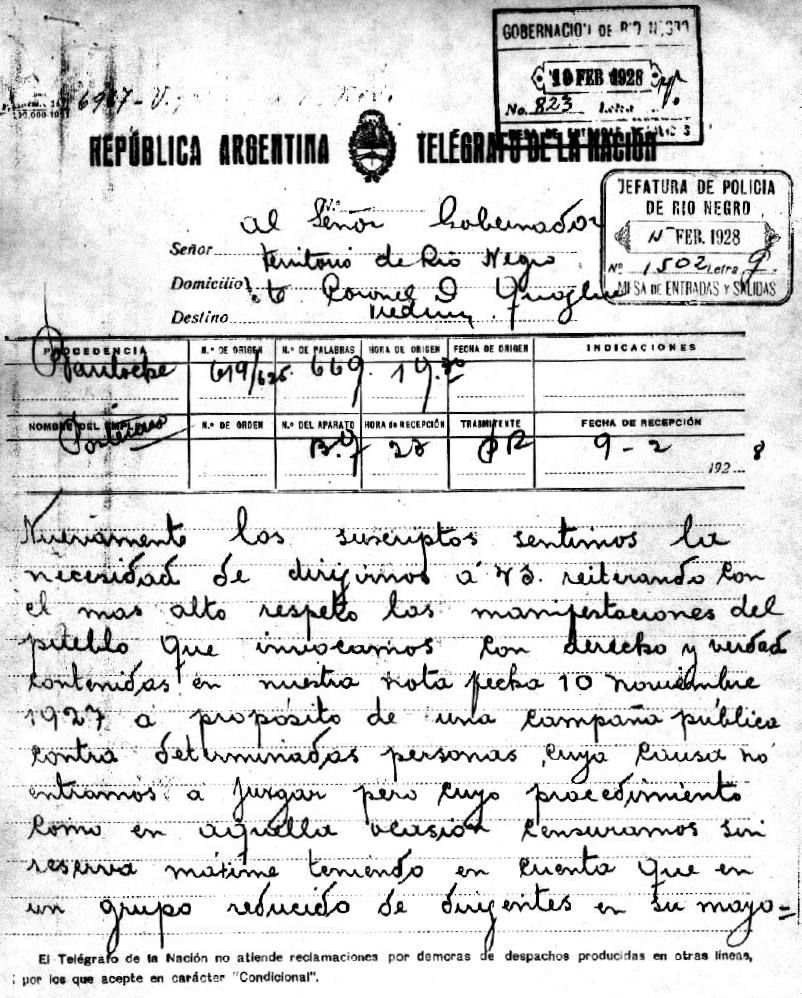 GOBERNACION DE RIO NEGRO
10 FEB 1928
No. 823 Letra
MESA DE ENTRADAS
6967-
REPÚBLICA ARGENTINA TELÉGRAFO DE LA NACIÓN
JEFATURA DE POLICIA
DE RIO NEGRO
FEB. 1928
No 1502 Letra 9
MESA DE ENTRADAS Y SALIDAS
Al Señor Gobernador
Señor Territorio de Rio Negro
Domicilio Coronel D Quaglia
Destino Viedma
PROCEDENCIA N.º DE ORIGEN N.º DE PALABRAS HORA DE ORIGEN FECHA DE ORIGEN INDICACIONES
Bariloche 619/625 669 19.30
NOMBRE DEL EMPLEADO N.º DE ORDEN N.º DEL APARATO HORA de RECEPCIÓN TRASMITENTE FECHA DE RECEPCIÓN
23 9-2
192 8
Nuevamente los suscriptos sentimos la
necesidad de dirigirnos á VS. reiterando con
el mas alto respeto las manifestaciones del
pueblo que invocamos con derecho y verdad
contenidas en nuestra nota fecha 10 noviembre
1927 a propósito de una campaña pública
contra determinadas personas, cuya causa no
entramos a juzgar pero cuyo procedimiento
como en aquella ocasión censuramos sin
reserva máxime teniendo en cuenta que en
un grupo reducido de dirigentes en su mayo=
El Telégrafo de la Nación no atiende reclamaciones por demoras de despachos producidas en otras líneas,
por los que acepte en carácter "Condicional".